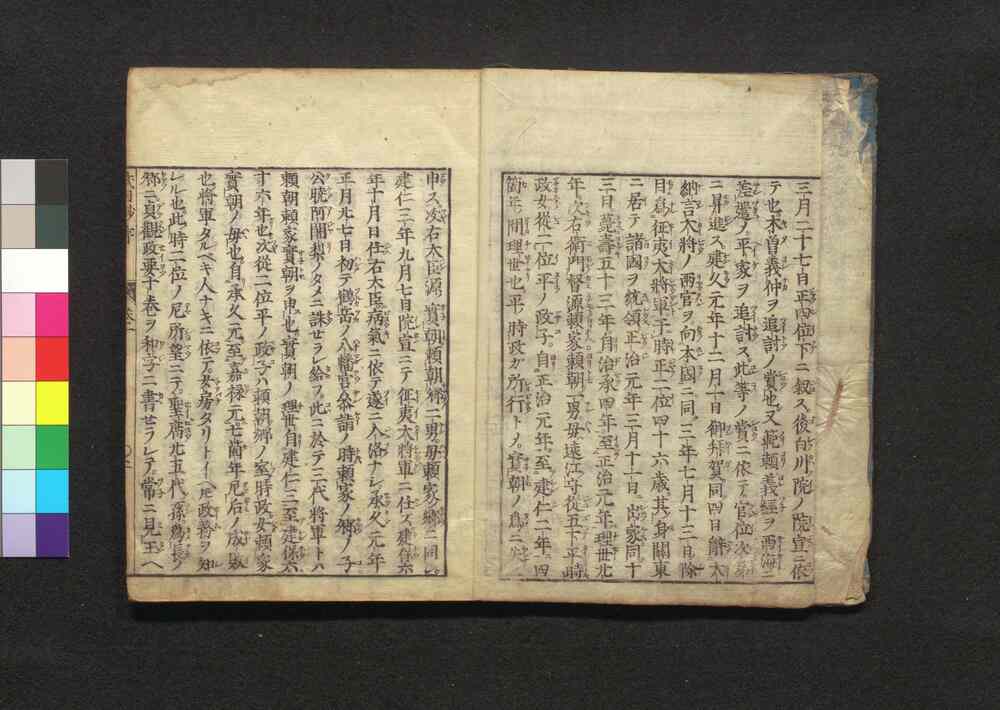 三月二十七日正四位下ニ叙ス後白川院ノ院宣ニ依
テ也木曽義仲ヲ追討ノ賞也又範頼義經ヲ西海ニ
差遣ノ平家ヲ追討ス此等ノ賞ニ依テ官位次第
ニ昇進ス建久元年十二月一日御拜賀同四日辭大
納言大將ノ両官ヲ向本國ニ同三年七月十二日除
目為征夷大將軍于時正二位四十六歳其身關東
ニ居テ諸國ヲ統領正治元年三月十一日出家同十
三日薨壽五十三年自治承四年至正治元年理世九
年次右衛門督源頼家頼朝一男母遠江守從五下平時
政女從二位平ノ政子自正治元年至建仁二年四
箇年ノ間理世也平ノ時政カ所行トノ實朝ノ為ニ
申ス次右大臣源實朝頼朝卿二男母頼家卿ニ同
建仁三年九月七日院宣ニテ征夷大將軍ニ任ス建保六
年十月日任右大臣病氣ニ依テ遂ニ入洛ナシ承久元年
正月廿七日初テ鶴岳ノ八幡宮参詣ノ時頼家ノ卿ノ子
公暁阿闍梨ノタメニ誅セラレ給フ此ニ於テ三代將軍トハ
頼朝頼家實朝ヲ申也實朝ノ理世自建仁三至建保六
十六年也次從二位平ノ政子ハ頼朝卿ノ室時政女頼家
實朝ノ母也自承久元至嘉禄元七箇年尼后ノ成敗
也將軍タルベキ人ナキニ依テ女房タリトイヘ𪜈政務ヲ知
レル也此時二位ノ尼所望ニテ聖廟九五代ノ孫為長ノ
卿ニ貞観政要十巻ヲ和字ニ書セラレテ常ニ見玉ヘ